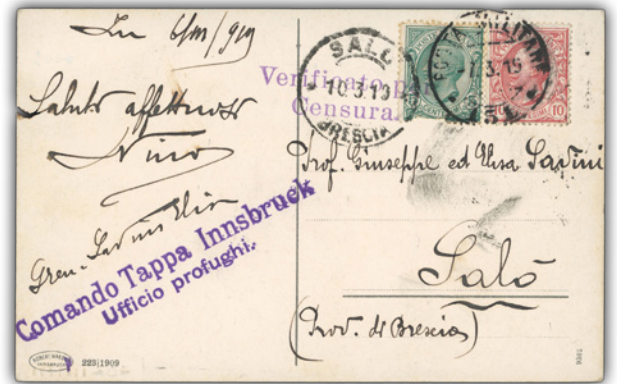 6/III/919
Saluti affettuosi
Nino
Comando Tappa Innsbruck
Ufficio profughi.
223|1909
Verificato per
Censura
SALÒ
10.3.19
BRESCIA
POSTA MILITARE
3.19
10
Prof. Giuseppe ed Elisa Savini
Salò
(Prov. di Brescia)
9302